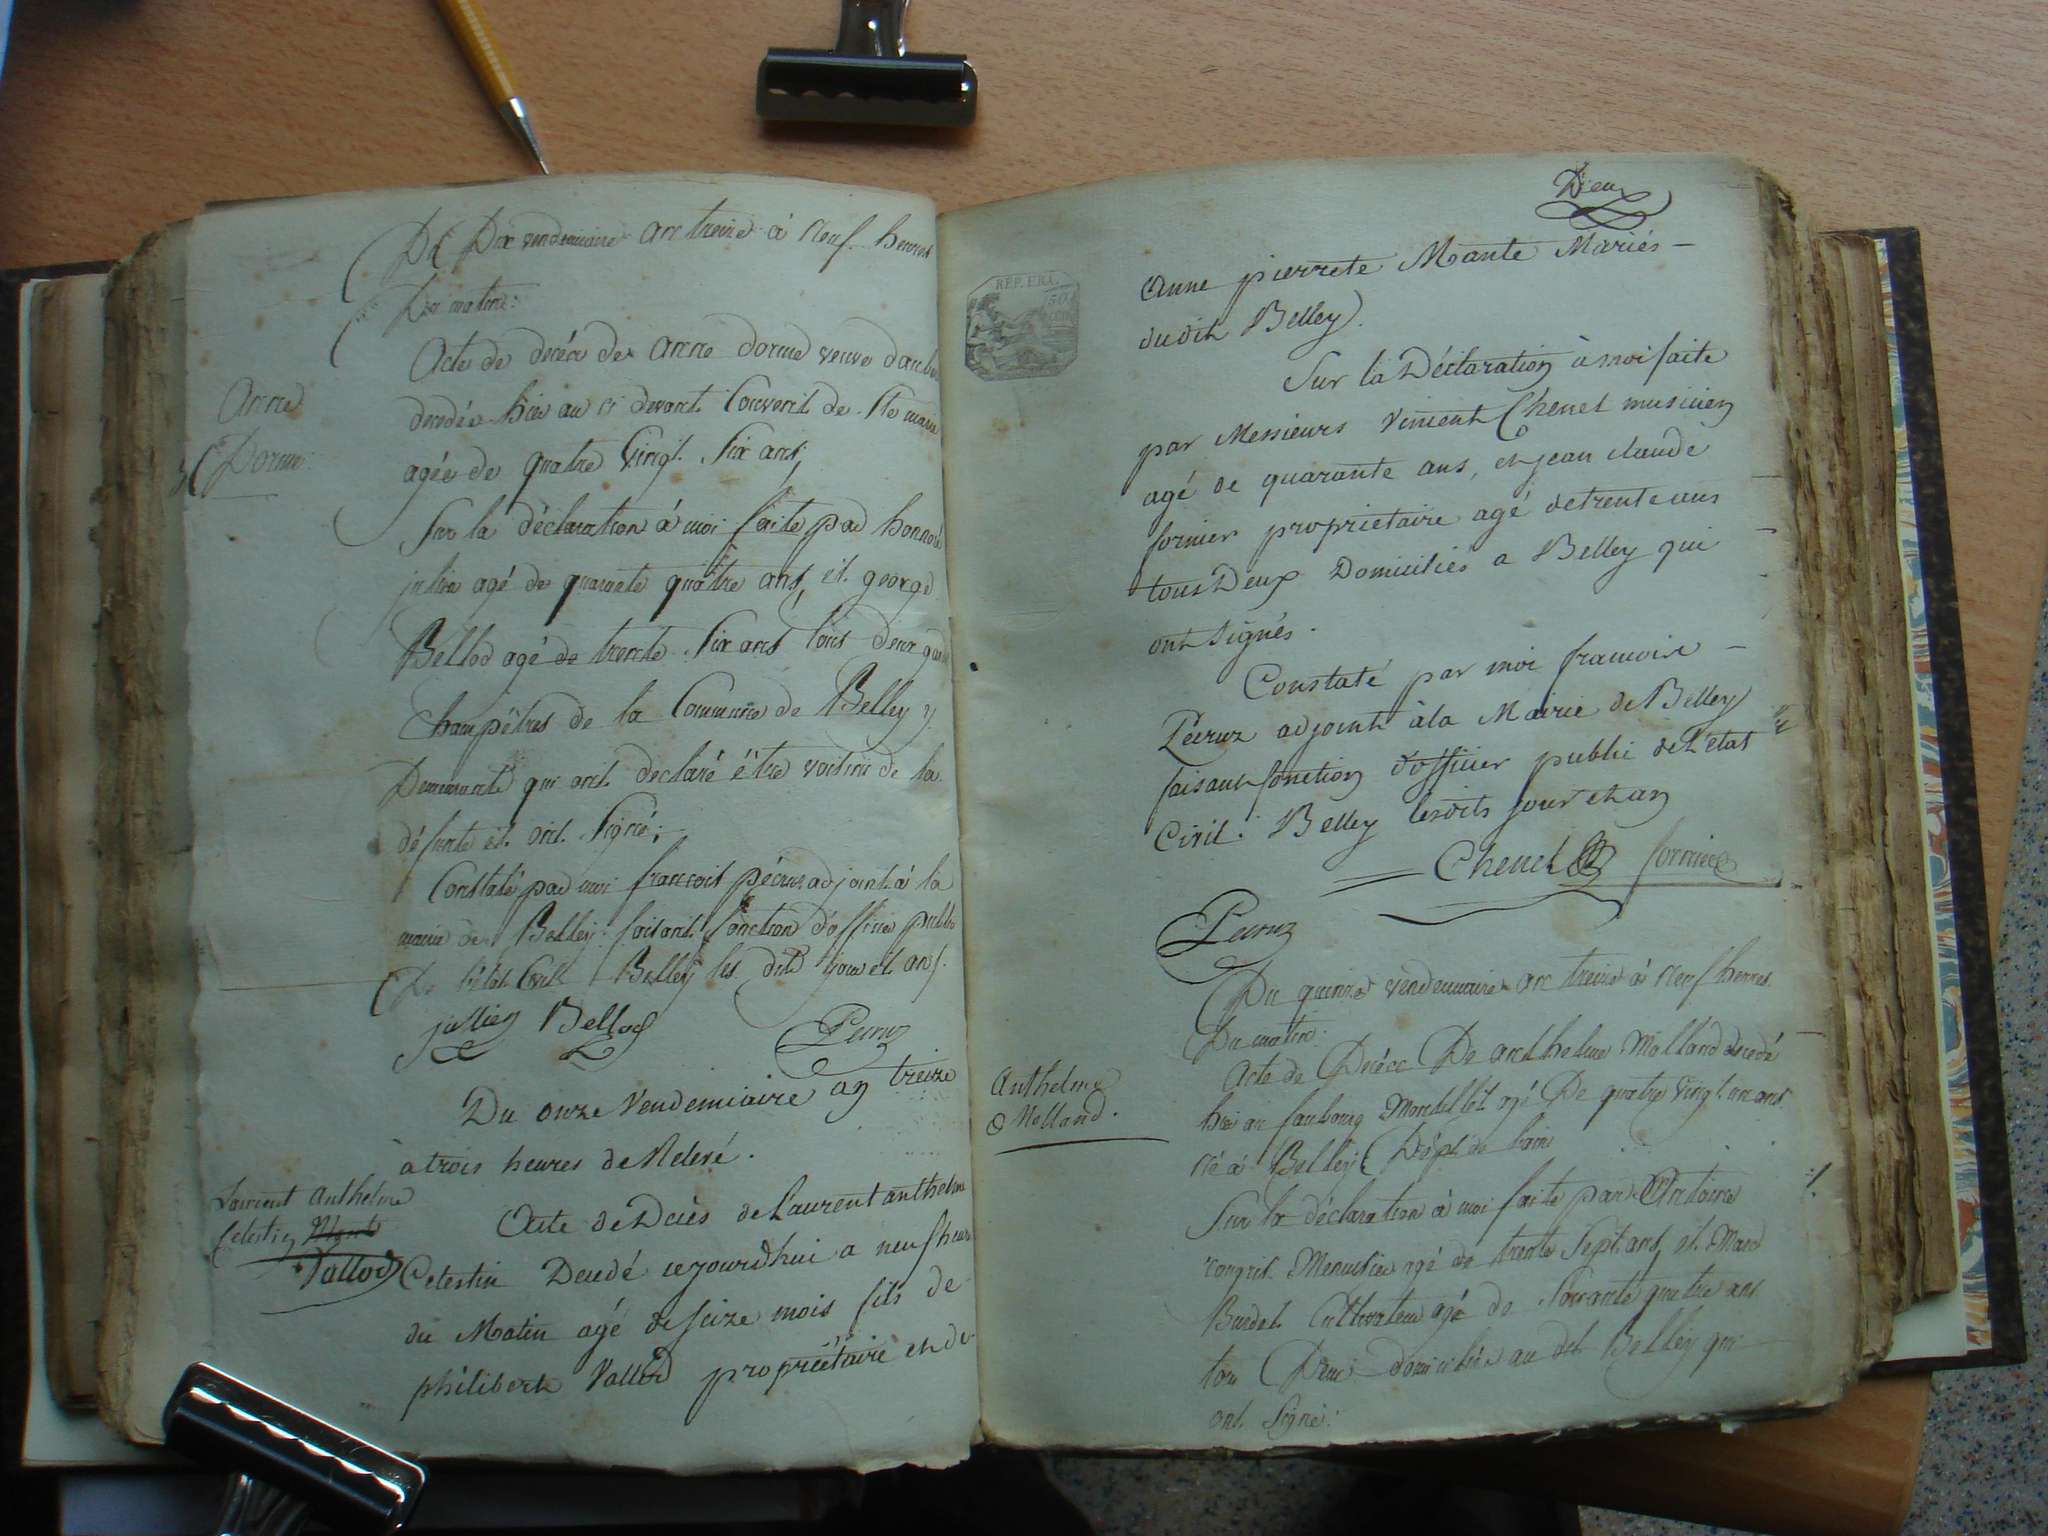 Du Dix vendemiaire an treize à Neuf heures
Du matin:
Acte de decés de Anne dorme veuve
decedée hier au ci devant Couvent de Ste marie
agée de quatre Vingt Six ans,
Anne
Dorme.
Sur la déclaration à moi faite par honnoré
julien agé de quarante quatre ans, et george
Bellod agé de trente Six ans tous deux gardes
Champêtres de la Commune de Belley y
Demeurants qui ont declaré être voisins de la
défunte et ont Signé;
Constaté par moi francois pécruz adjoint à la
mairie de Belley faisant fonction d'officier public
De l'état Civil Belley les dits jour et an.
jullien Bellod Pecruz
Du onze Vendemiaire an treize
à trois heures de Relevé.
Laurent Anthelme
Celestin
Vallod
Acte de Decès de Laurent anthelme
Celestin Decedé cejourdhui a neuf heures
du Matin agé de Seize mois fils de
philibert Vallod propriétaire et de
Deux
REP. FRA.
50
Anne pierrete Mante Mariés
dudit Belley.
Sur la Déclaration à moi faite
par Messieurs Vincent Chenel musicien
agé de quarante ans, et jean claude
fornier proprietaire agé de trente ans
tous Deux Domiciliés a Belley qui
ont Signés.
Constaté par moi francois
Pécruz adjoint à la Mairie de Belley
faisant fonction d'officier public de L'état
Civil. Belley lesdits jour et an
Chenel fornier
Pecruz
Du quinze vendemiaire an treize à Neuf heures
Du matin:
Anthelme
Molland.
Acte de Décéc De anthelme Molland decedé
hier au faubourg agé De quatre Vingt un ans
né à Belley Dépt. de lain
Sur la déclaration à moi faite par Antoine
Menuisier agé de trente Sept ans, et Marc
Burdet Cultivateur agé de Soixante quatre ans
tous Deux domiciliés au dit Belley qui
ont Signé: